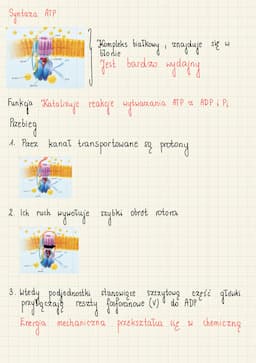 Syntaza ATP
Kompleks białkowy, znajduje się w
błonie
Jest bardzo wydajny
Funkcja Katalizuje reakcje wytwarzania ATP z ADP i Pi
Przebieg
1. Przez kanał transportowane są protony
2. Ich ruch wywołuje szybki obrót rotora
3. Wtedy podjednostki stanowiące szczytową część główki
przyłączają reszty fosforanowe (V) do ADP
Energia mechaniczna przekształca się w chemiczną